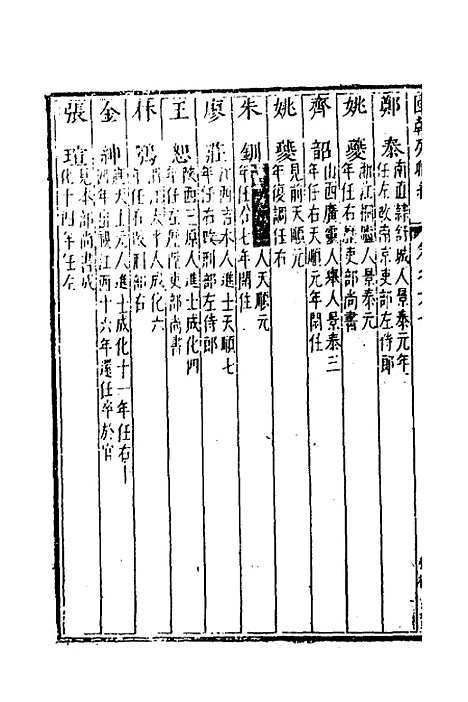 鄭泰 南直隸舒城人景泰元年
任左改南京吏部左侍郎
姚夔 浙江桐廬人景泰元
年任右歷吏部尚書
齊韶 山西廣靈人舉人景泰三
年任右天順元年閑任
姚夔 見前天順元
年復調任右
朱釧 人天順元
年任右七年閑住
廖莊 江西吉水人進士天順七
年任右改刑部左侍郎
王恕 陝西三原人進士成化四
年任左歷吏部尚書
林鶚 人成化六
年任右改刑部右
金紳 人進士成化十一年任右
江西十六年還任卒於官
張瑄 見本部尚書成
化十四年任左